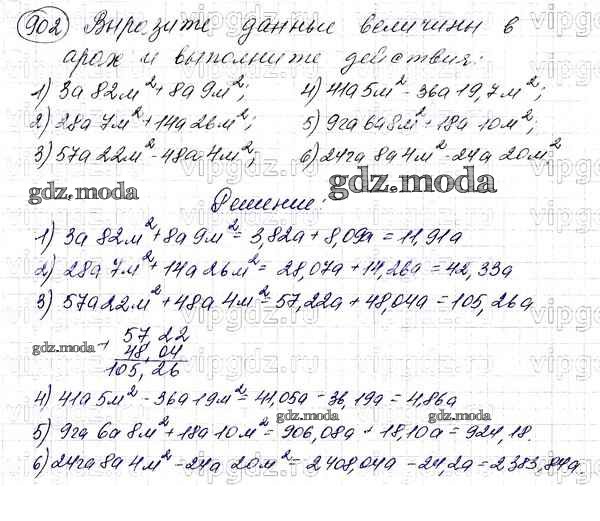 902 Выразите данные величины в
арах и выполните действия:
1) 3а 82м²+8а 9м²; 4) 41а 5м² - 36а 19,7м²;
2) 28а 7м²+14а 26м²; 5) 9га 6а 8м²+18а 10м²;
3) 57а 22м²-48а 4м²; 6) 24га 8а 4м²-24а 20м²
gdz.moda gdz.moda
Решение:
1) 3а 82м²+8а 9м²= 3,82а + 8,09а = 11,91а
2) 28а 7м²+14а 26м²= 28,07а + 14,26а = 42,33а
3) 57а 22м²+48а 4м²=57,22а + 48,04а = 105,26а
57,22
gdz.moda + 48,04
105,26
4) 41а 5м² - 36а 19м²= 41,05а - 36,19а = 4,86а
gdz.moda gdz.moda
5) 9га 6а 8м²+18а 10м²= 906,08а + 18,10а = 924,18.
6) 24га 8а 4м²-24а 20м²= 2408,04а -24,2а = 2383,84а.